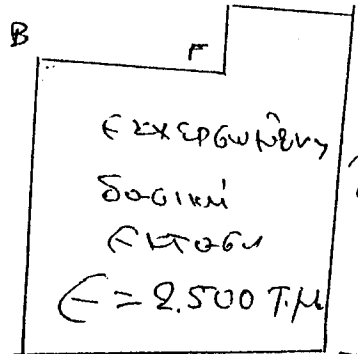 B
Γ
εκχερσωμένη
δασική
έκταση
Ε=2.500 Τ.μ